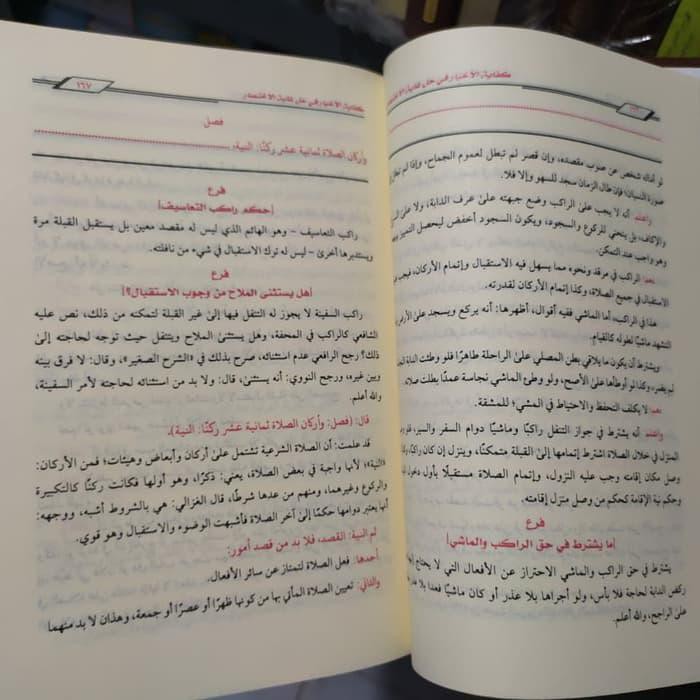 كفاية الأخيار في حل غاية الاختصار
لو أماله شخص عن صوب مقصده، وإن قصر لم تبطل لعموم الجماح، وإذا لم تبطل
صورة النسيان؛ فإن طال الزمان سجد للسهو وإلا فلا.
واعلم: أنه لا يجب على الراكب وضع جبهته على عرف الدابة، ولا على السرج
والإكاف، بل ينحني للركوع والسجود، ويكون السجود أخفض ليحصل التمييز بينهما
وهو واجب عند التمكن.
نعم: الراكب في مرقد ونحوه مما يسهل فيه الاستقبال وإتمام الأركان، فيجب
الاستقبال في جميع الصلاة، وكذا إتمام الأركان لقدرته.
هذا في الراكب، أما الماشي ففيه أقوال، أظهرها: أنه يركع ويسجد على الأرض
التشهد ماشيًا لطوله كالقيام.
ويشترط أن يكون ما يلاقي بطن المصلي على الراحلة طاهرًا فلو وطئت الدابة
لم يضر، وكذا لو أوطأها على الأصح، ولو وطئ الماشي نجاسة عمدًا بطلت صلاته
نعم: لا يكلف التحفظ والاحتياط في المشي؛ للمشقة.
واعلم: أنه يشترط في جواز التنفل راكبًا وماشيًا دوام السفر والسير، فلو
المنزل في خلال الصلاة اشترط إتمامها إلى القبلة متمكنًا، وينزل إن كان راكبًا،
وصل مكان إقامته وجب عليه النزول، وإتمام الصلاة مستقبلًا بأول دخوله
وحكم نية الإقامة كحكم من وصل منزل إقامته.
فرع
[ما يشترط في حق الراكب والماشي]
يشترط في حق الراكب والماشي الاحتراز عن الأفعال التي لا يحتاج
ركض الدابة لحاجة فلا بأس، ولو أجراها بلا عذر أو كان ماشيًا فعدا بلا عذر
على الراجح، والله أعلم.
كفاية الأخيار في حل غاية الاختصار
١٦٧
فصل
وأركان الصلاة ثمانية عشر ركنًا: النية،
فرع
[حكم راكب التعاسيف]
راكب التعاسيف – وهو الهائم الذي ليس له مقصد معين بل يستقبل القبلة مرة
ويستدبرها أخرى – ليس له ترك الاستقبال في شيء من نافلته.
فرع
[هل يستثنى الملاح من وجوب الاستقبال؟]
راكب السفينة لا يجوز له التنفل فيها إلى غير القبلة لتمكنه من ذلك، نص عليه
الشافعي كالراكب في المحفة، وهل يستثنى الملاح ويتنفل حيث توجه لحاجته إلى
ذلك؟ رجح الرافعي عدم استثنائه، صرح بذلك في «الشرح الصغير»، وقال: لا فرق بينه
وبين غيره، ورجح النووي: أنه يستثنى، قال: ولا بد من استثنائه لحاجته لأمر السفينة،
والله أعلم.
قال: (فصل: وأركان الصلاة ثمانية عشر ركنًا: النية).
قد علمت: أن الصلاة الشرعية تشتمل على أركان وأبعاض وهيئات؛ فمن الأركان:
«النية»؛ لأنها واجبة في بعض الصلاة، يعني: ذكرًا، وهو أولها فكانت ركنًا كالتكبيرة
والركوع وغيرهما، ومنهم من عدها شرطًا، قال الغزالي: هي بالشروط أشبه، ووجهه:
أنها يعتبر دوامها حكمًا إلى آخر الصلاة فأشبهت الوضوء والاستقبال وهو قوي.
ثم النية: القصد، فلا بد من قصد أمور:
أحدها: فعل الصلاة لتمتاز عن سائر الأفعال.
والثاني: تعيين الصلاة المأتي بها من كونها ظهرًا أو عصرًا أو جمعة، وهذان لا بد منهما